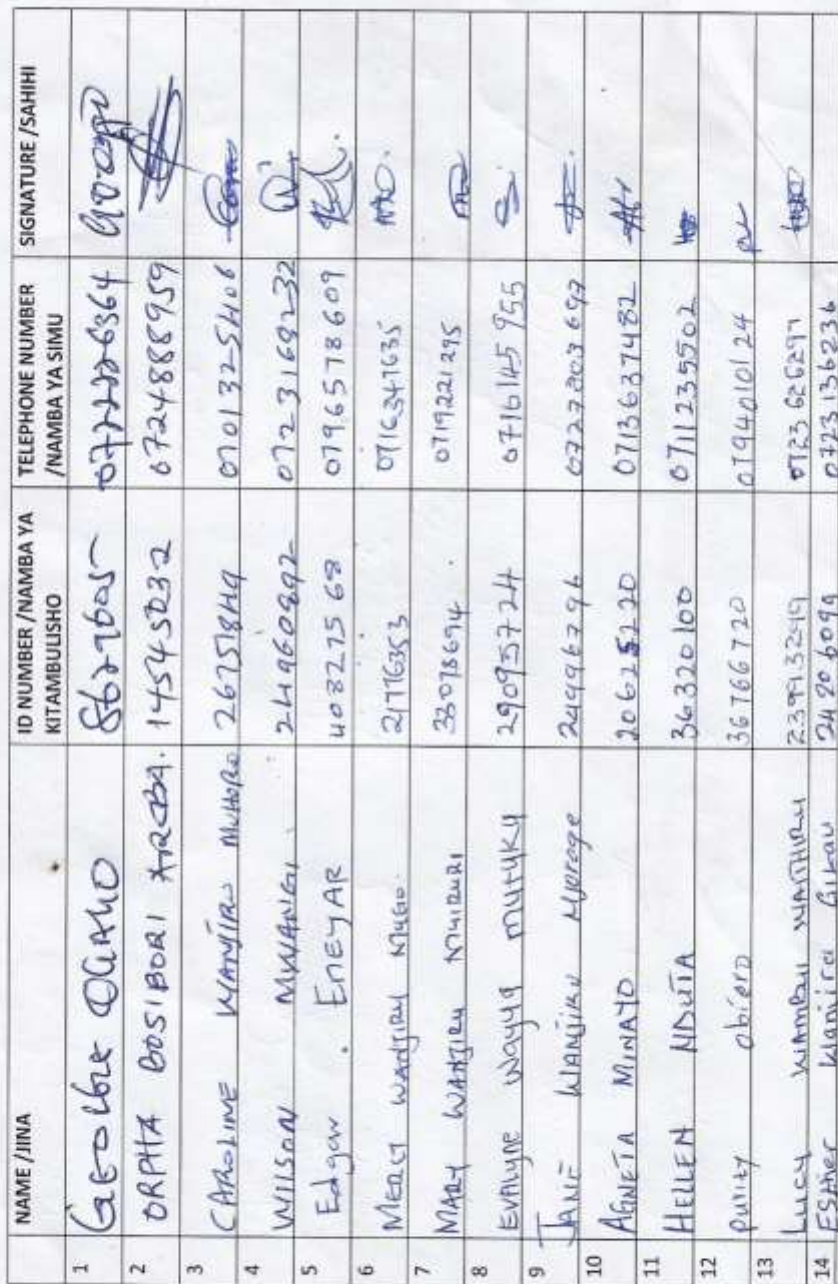 NAME /JINA ID NUMBER /NAMBA YA KITAMBULISHO TELEPHONE NUMBER /NAMBA YA SIMU SIGNATURE /SAHIHI
1 GEORGE 0722226364
2 ORPHA BOSIBORI 14545032 0724888959
3 CAROLINE WANJIRU MUHORO 26751849 0701325406
4 WILSON MWANGI 24960892 0723169232
5 Edgar ENEYAR 40827568 0796578609
6 MERCY WANJIRU 21776353 0716347635
7 MARY WANJIRU 33078694 0719221295
8 EVALYNE Wayua MUTUKU 29095724 0716145955
9 JANE WANJIRU 24996796 0727803697
10 AGNETA MINAYO 20625220 0713637482
11 HELLEN NDUTA 36320100 0711235502
12 purity obiero 36766720 0794010124
13 LUCY WAMBUI 23993299 0723626297
14 ESTHER Wanjiru 24906094 0723136236